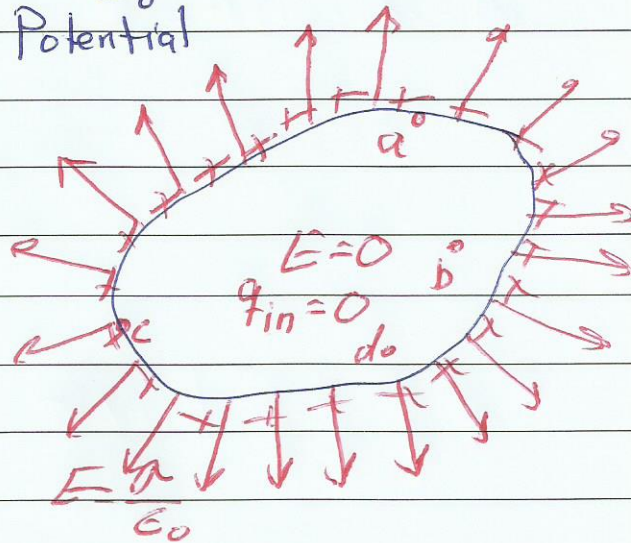 Potential
a
E=0
b
q_in=0
c
d
E=σ/ε₀